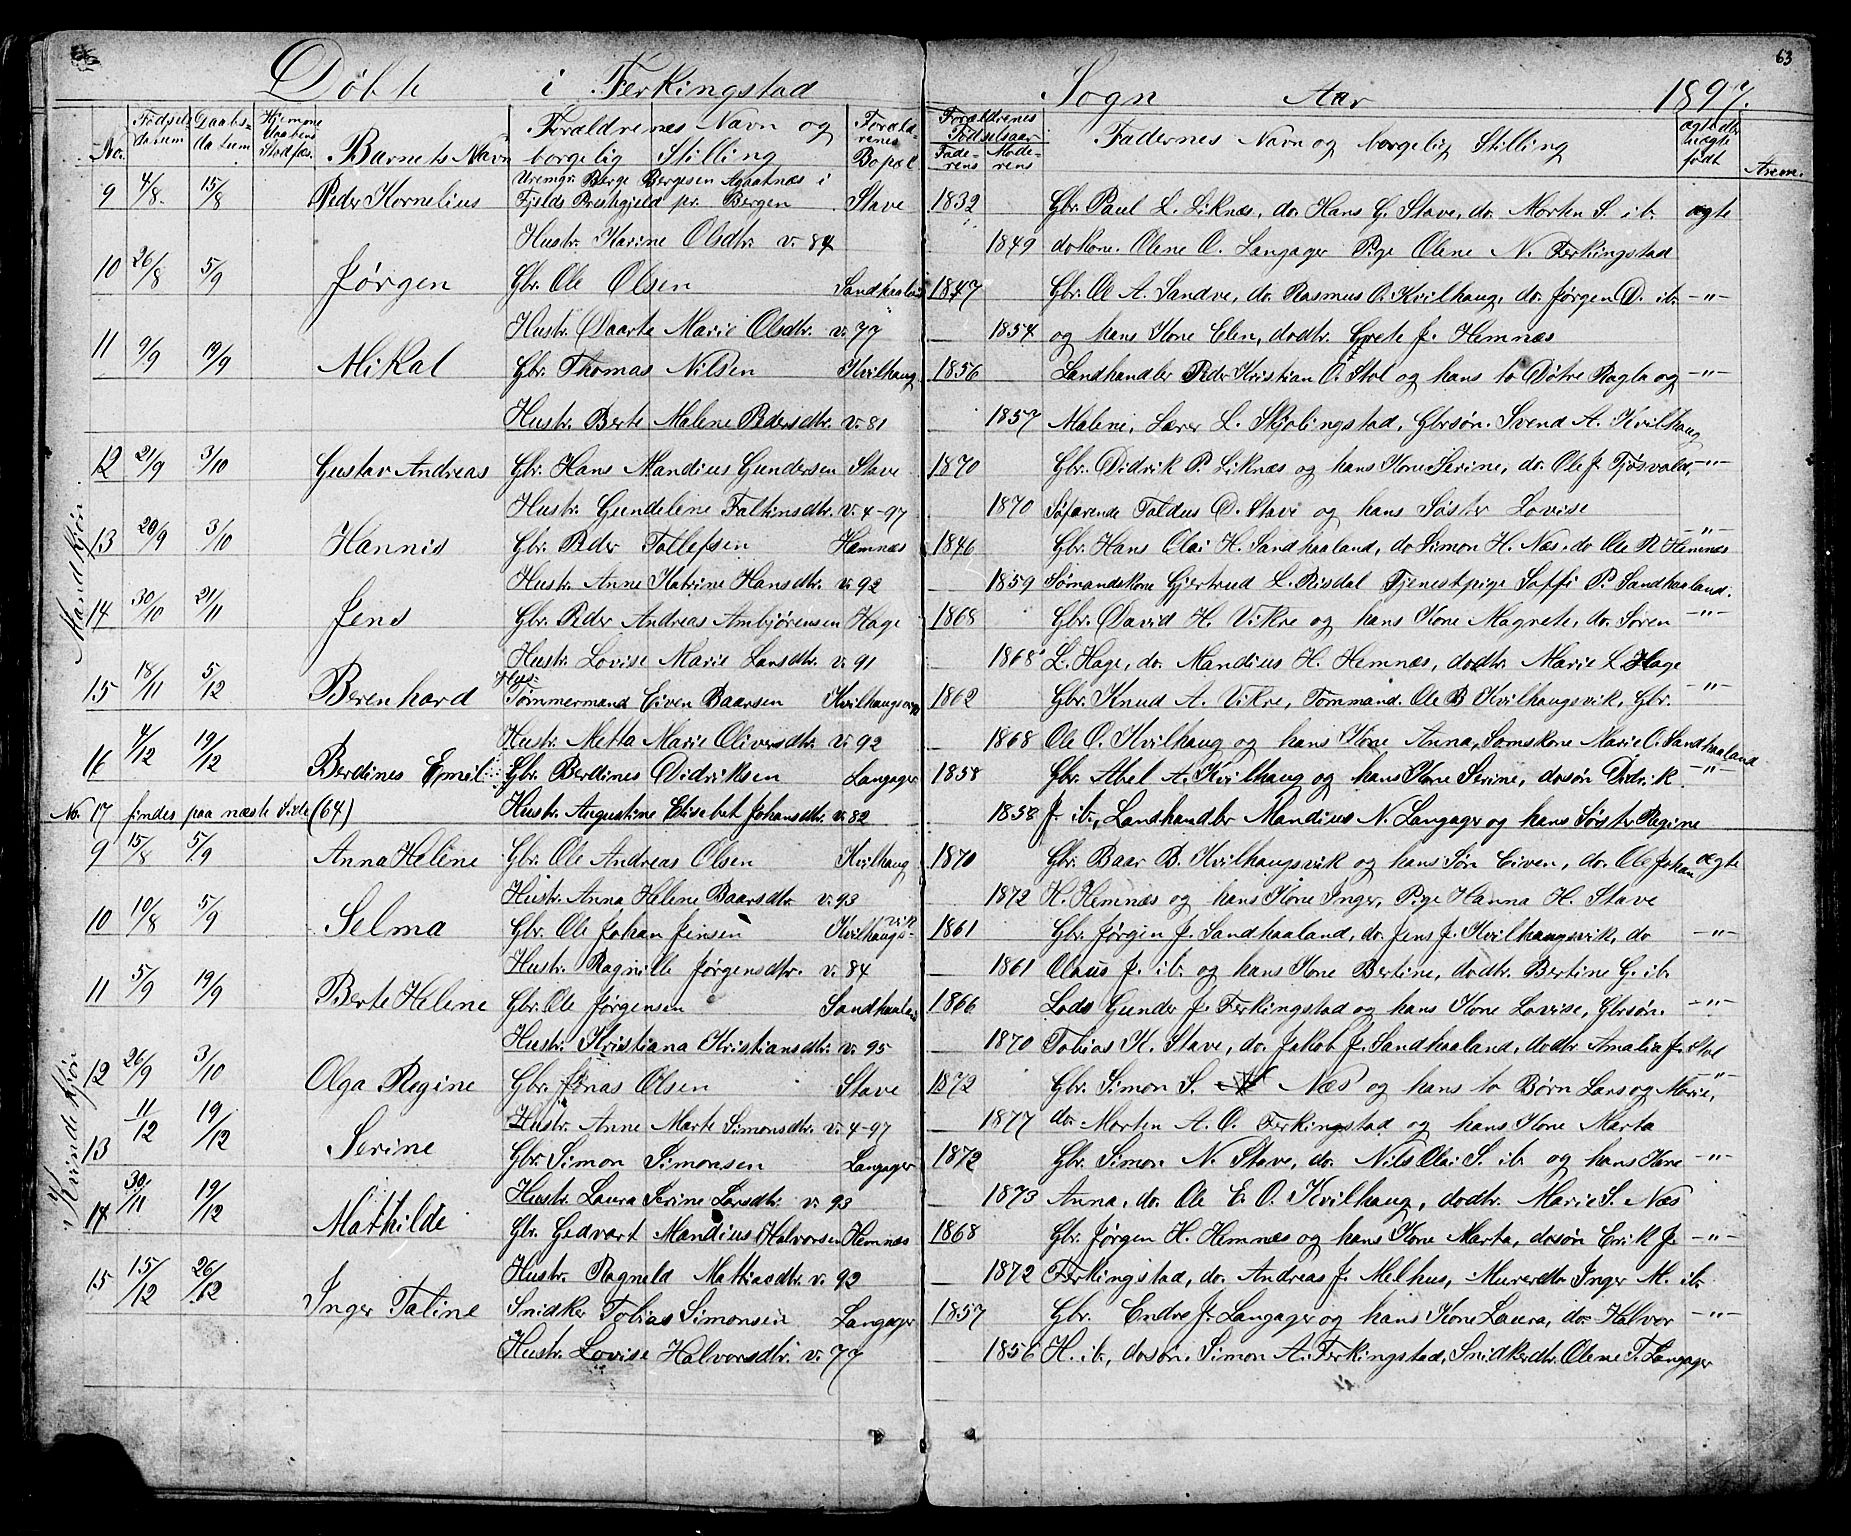 63
Døbte i Ferkingstad Sogn Aar 1897.
No. Fødsels Datum Daabs- Datum Hjemme Daabens Stadfæs. Barnets Navn Forældrenes Navn og borgelig Stilling Foræld- renes Bopæl Forældrenes Fødselsaar Fade- rens Mode- rens Fadernes Navn og borgelig Stilling ægte eller uægte født Anm.
Mandkjøn
9 4/8. 15/8 Peder Kornelius Berge Bergesen Agaatnæs i
Fjelds Prestegjeld pr. Bergen Stave 1832 Gbr. Paul L. Liknæs, do. Hans G. Stave, do. Morten S. ib. ægte
Hustr. Karine Olsdtr. v. 84 1849 do Kone. Olene O. Langager Pige Olene N. Ferkingstad
10 26/8 5/9 Jørgen Gbr. Ole Olsen Sandhaaland 1847 Gbr. Ole A. Sandve, do. Rasmus O. Kvilhaug, do. Jørgen D. ib. -"-
Hustr. Daarte Marie Olsdtr. v. 77 1854 og hans Kone Elen, dodtr. Grete J. Hemnæs
11 9/9 19/9 Mikal Gbr. Thomas Nilsen Kvilhaug 1856 Landhandler Peder Kristian O. Stol og hans to Døtre Ragla og -"-
Hustr. Berte Malene Pedersdtr. v. 81 1857 Malene, Lærer L. Skjolingstad, Gbrsøn. Svend A. Kvilhaug
12 21/9 3/10 Gustav Andreas Gbr. Hans Mandius Gundersen Stave 1870 Gbr. Didrik P. Liknæs og hans Kone Serine, do. Ole J. Tjøsvold, -"-
Hustr. Gundeline Falkinsdtr. v. 4-97 1870 Søfarende Faldus D. Stave og hans Søster Lovise
13 20/9 3/10 Hannis Gbr. Peder Tollefsen Hemnæs 1846 Gbr. Hans Olai H. Sandhaaland, do Simon H. Næs, do Ole R. Hemnæs -"-
Hustr. Anne Katrine Hansdtr. v. 92 1859 Sømandskone Gjertrud L. Risdal Tjenestpige Soffi P. Sandhaaland.
14 30/10 21/11 Jens Gbr. Peder Andreas Ambjørensen Hage 1868 Gbr. David H. Vikre og hans Kone Magnete, do. Søren -"-
Hustr. Lovise Marie Larsdtr. v. 91 1868 L. Hage, do. Mandius H. Hemnæs, dodtr. Marie L Hage
15 18/11 5/12 Berenhard Hus- Tømmermand Eiven Baarsen Kvilhaugsvik 1862 Gbr. Knud A. Vikre, Tømmand. Ole B Kvilhaugsvik, Gbr. -"-
Hustr. Metta Marie Oliversdtr. v. 92 1868 Ole O. Kvilhaug og hans Kone Anna, Sømskone Marie O. Sandhaaland
16 4/12 19/12 Berdines Emil Gbr. Berdines Didriksen Langager 1858 Gbr. Abel A. Kvilhaug og hans Kone Serine, dosøn Didrik -"-
No. 17 findes paa næste Side (64) Hustr. Augustine Elisebet Johansdtr. v. 82 1858 J. ib., Landhandler Mandius N. Langager og hans Søster Regine
Kvindekjøn
9 15/8 5/9 Anna Helene Gbr. Ole Andreas Olsen Kvilhaug 1870 Gbr. Baar B. Kvilhaugsvik og hans Søn Eiven, do. Ole Johan ægte
Hustr. Anna Helene Baarsdtr. v. 93 1872 H. Hemnæs og hans Kone Inger, Pige Hanna H. Stave
10 10/8 5/9 Selma Gbr. Ole Johan Jensen Kvilhaugs- vik 1861 Gbr. Jørgen J. Sandhaaland, do. Jens J. Kvilhaugsvik, do -"-
Hustr. Ragnille Jørgensdtr. v. 84 1861 Olaus J. ib. og hans Kone Bertine, dodtr. Bertine G. ib.
11 5/9 19/9 Berte Helene Gbr. Ole Jørgensen Sandhaaland 1866 Lods Gunder J. Ferkingstad og hans Kone Lovise, Gbrsøn. -"-
Hustr. Kristiana Kristiansdtr. v. 95 1870 Tobias K. Stave, do. Jakob J. Sandhaaland, dodtr Amalia J. Stol
12 26/9 3/10 Olga Regine Gbr. Jonas Olsen Stave 1872 Gbr. Simon S. Næs og hans to Børn Lars og Marie, -"-
Hustr. Anne Marte Simonsdtr. v. 4-97 1877 do. Morten A. O. Ferkingstad og hans Kone Marta
13 11/12 19/12 Serine Gbr. Simon Simonsen Langager 1872 Gbr. Simon N. Stave, do. Nils Olai S. ib. og hans Kone -"-
Hustr. Laura Serine Larsdtr. v. 93 1873 Anna, do. Ole E. O. Kvilhaug, dodtr. Marie S. Næs
14 30/11 19/12 Mathilde Gbr. Gedvart Mandius Halvorsen Hemnæs 1868 Gbr. Jørgen H. Hemnæs og hans Kone Marta, dosøn Erik J. -"-
Hustr. Ragneld Mattiasdtr. v. 92 1872 Ferkingstad, do. Andreas J. Melhus, Murerdtr. Inger M. ib.
15 15/12 26/12 Inger Taline Snidker Tobias Simonsen Langager 1857 Gbr. Endre J. Langager og hans Kone Laura, do. Halvor -"-
Hustr. Lovise Halvorsdtr. v. 77 1856 H. ib., dosøn. Simon A. Ferkingstad, Snidkerdtr. Olene T. Langager